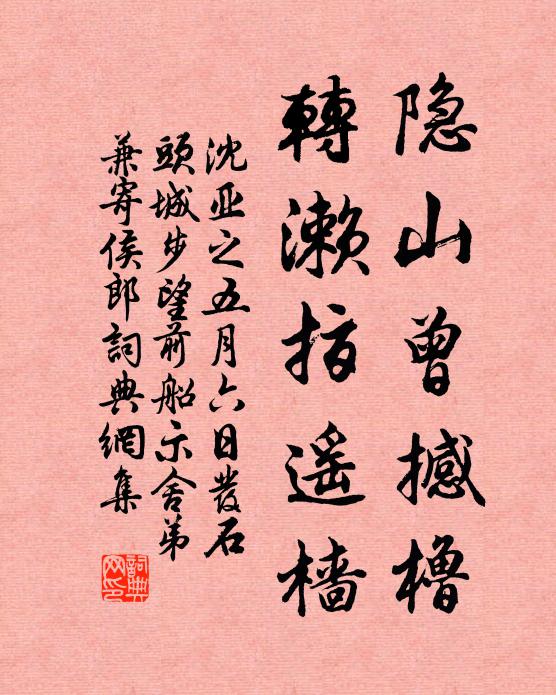 隐山曾撼橹
轉濑指遥樯
沈亚之五月六日發石
頭城步望前船示舍弟
兼寄侯郎詞典網集
詞典网印